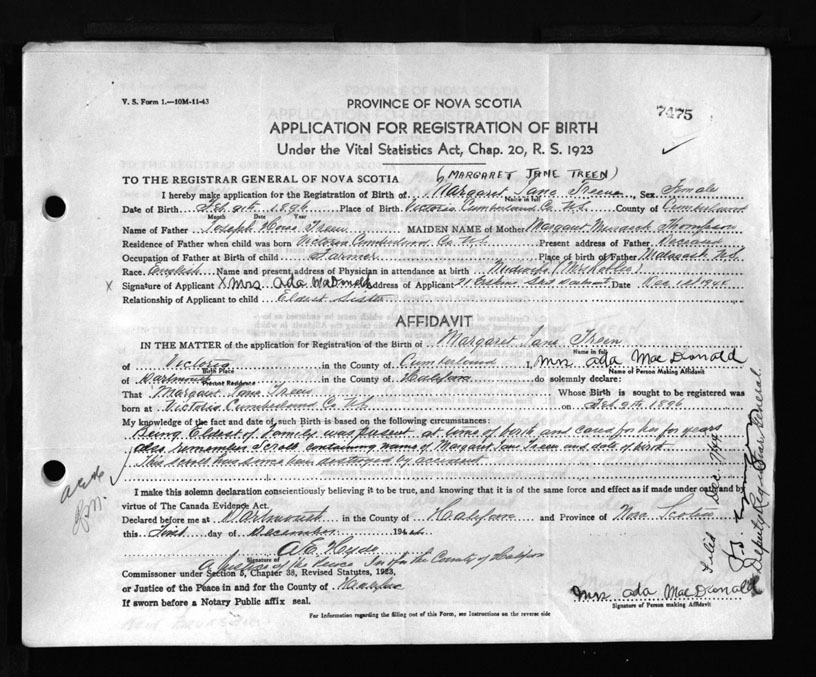 V. S. Form 1.—10M-11-43
7475
PROVINCE OF NOVA SCOTIA
APPLICATION FOR REGISTRATION OF BIRTH
Under the Vital Statistics Act, Chap. 20, R. S. 1923
(MARGARET JANE TREEN)
TO THE REGISTRAR GENERAL OF NOVA SCOTIA
I hereby make application for the Registration of Birth of Margaret Jane Treen, Sex Female
Name in full
Date of Birth Feb. 9th 1896 Place of Birth Victoria Cumberland Co N.S. County of Cumberland
Month Date Year
Name of Father Joseph Howe Treen MAIDEN NAME of Mother Margaret Thompson
Residence of Father when child was born Victoria Cumberland Co N.S. Present address of Father Deceased
Occupation of Father at Birth of Child Farmer Birth place of Father Malagash N.S.
Race English Name and present address of Physician in attendance at birth Midwife
X Signature of Applicant X Mrs Ada MacDonald Address of Applicant Date Dec 1st 1944
Relationship of Applicant to child Eldest Sister
AFFIDAVIT
IN THE MATTER of the application for Registration of the Birth of Margaret Jane Treen
Name in full
of Victoria in the County of Cumberland I, Mrs Ada MacDonald
Birth Place Name of Person Making Affidavit
of Dartmouth in the County of Halifax do solemnly declare:
Present Residence
That Margaret Jane Treen Whose Birth is sought to be registered was
born at Victoria Cumberland Co N.S. on Feb. 9th 1896
My knowledge of the fact and date of such Birth is based on the following circumstances:
Being Eldest of Family was present at time of birth and cared for her for years
also remember Scroll containing name of Margaret Jane Treen and date of birth.
This scroll has since been destroyed by accident
I make this solemn declaration conscientiously believing it to be true, and knowing that it is of the same force and effect as if made under oath and by
virtue of The Canada Evidence Act.
Declared before me at Dartmouth in the County of Halifax and Province of Nova Scotia
this First day of December 1944
A.E. Hyde
Signature of
A Justice of the Peace in & for the County of Halifax
Commissioner under Section 5, Chapter 38, Revised Statutes, 1923,
or Justice of the Peace in and for the County of Halifax
If sworn before a Notary Public affix seal.
Mrs Ada MacDonald
Signature of Person making Affidavit
For Information regarding the filling out of this Form, see Instructions on the reverse side
Filed Dec
Deputy Registrar General.